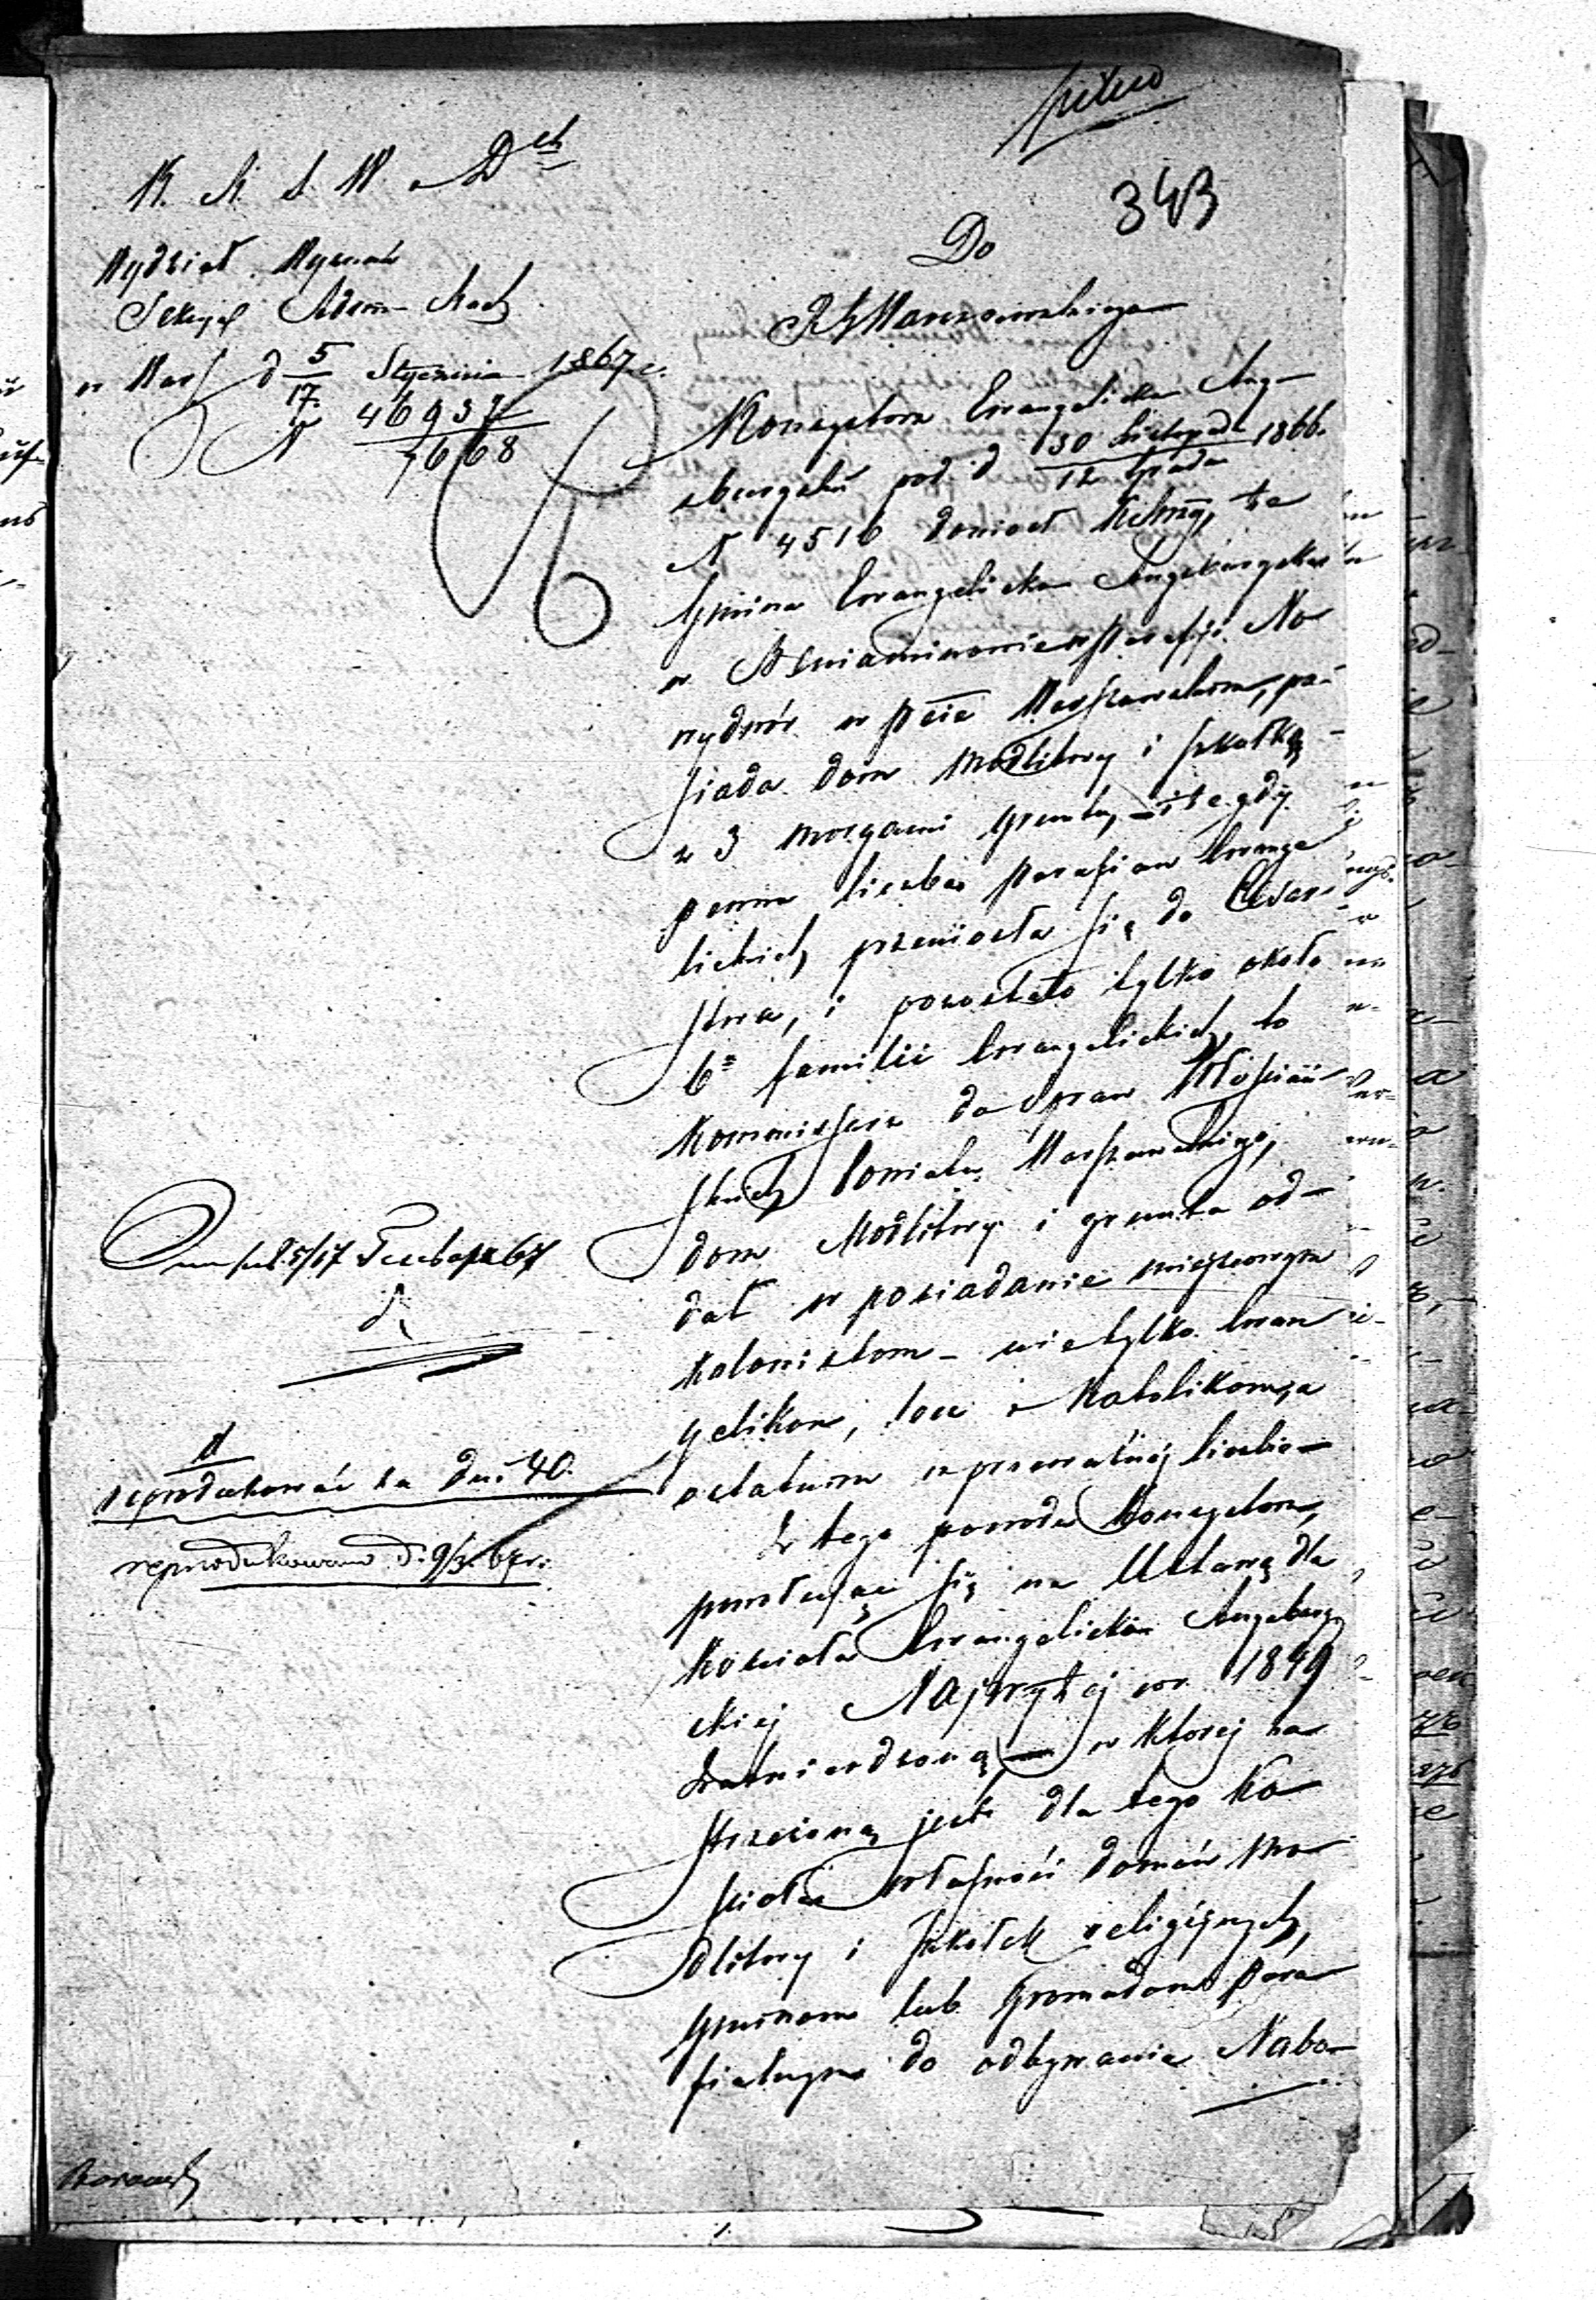 pilno
343
K. R. S. W. i D ch
Wydział Wyznań
Sekcya Adm. Rach
w Warsz d 5/17 Stycznia 1867 r.
N 46937/7668
Do
R G Warszawskiego
Konsystorz Ewangelicko Aug-
sburgski pod d 30 Listopada/12 Grudnia 1866.
N 4516 doniosł Kommy, że
Gmina Ewangelicko Augsburgska
w Beniaminowie parafji No
wydwór w pcie Warszawskim, po-
siada dom modlitwy i szkołkę
z 3 morgami gruntu, – i że gdy
pewna liczba parafian Ewange
lickich, przeniosła się do Cesar-
stwa, i pozostało tylko około
6 familii Ewangelickich, to
Kommissarz do Spraw Włościań
skich Powiatu Warszawskiego,
dom Modlitwy i grunta od-
dał w posiadanie miejscowym
kolonistom – nietylko Ewan
gelikom, lecz i Katolikom, a
ostatnim w przeważnej liczbie –
Z tego powodu Konsystorz,
powołując się na Ustawę dla
Kościoła Ewangelicko Augsburg
skiej Najwyżej w r. 1849
zatwierdzoną w ktorej za
strzeżoną jest dla tego Ko
ścioła własność domów Mo
dlitwy i szkołek religijnych,
gminom lub gromadom para
fialnym do odbywania Nabo-
5/17 67
reprodukować za dni 40.
reprodukowano d. 9/3 67 r.